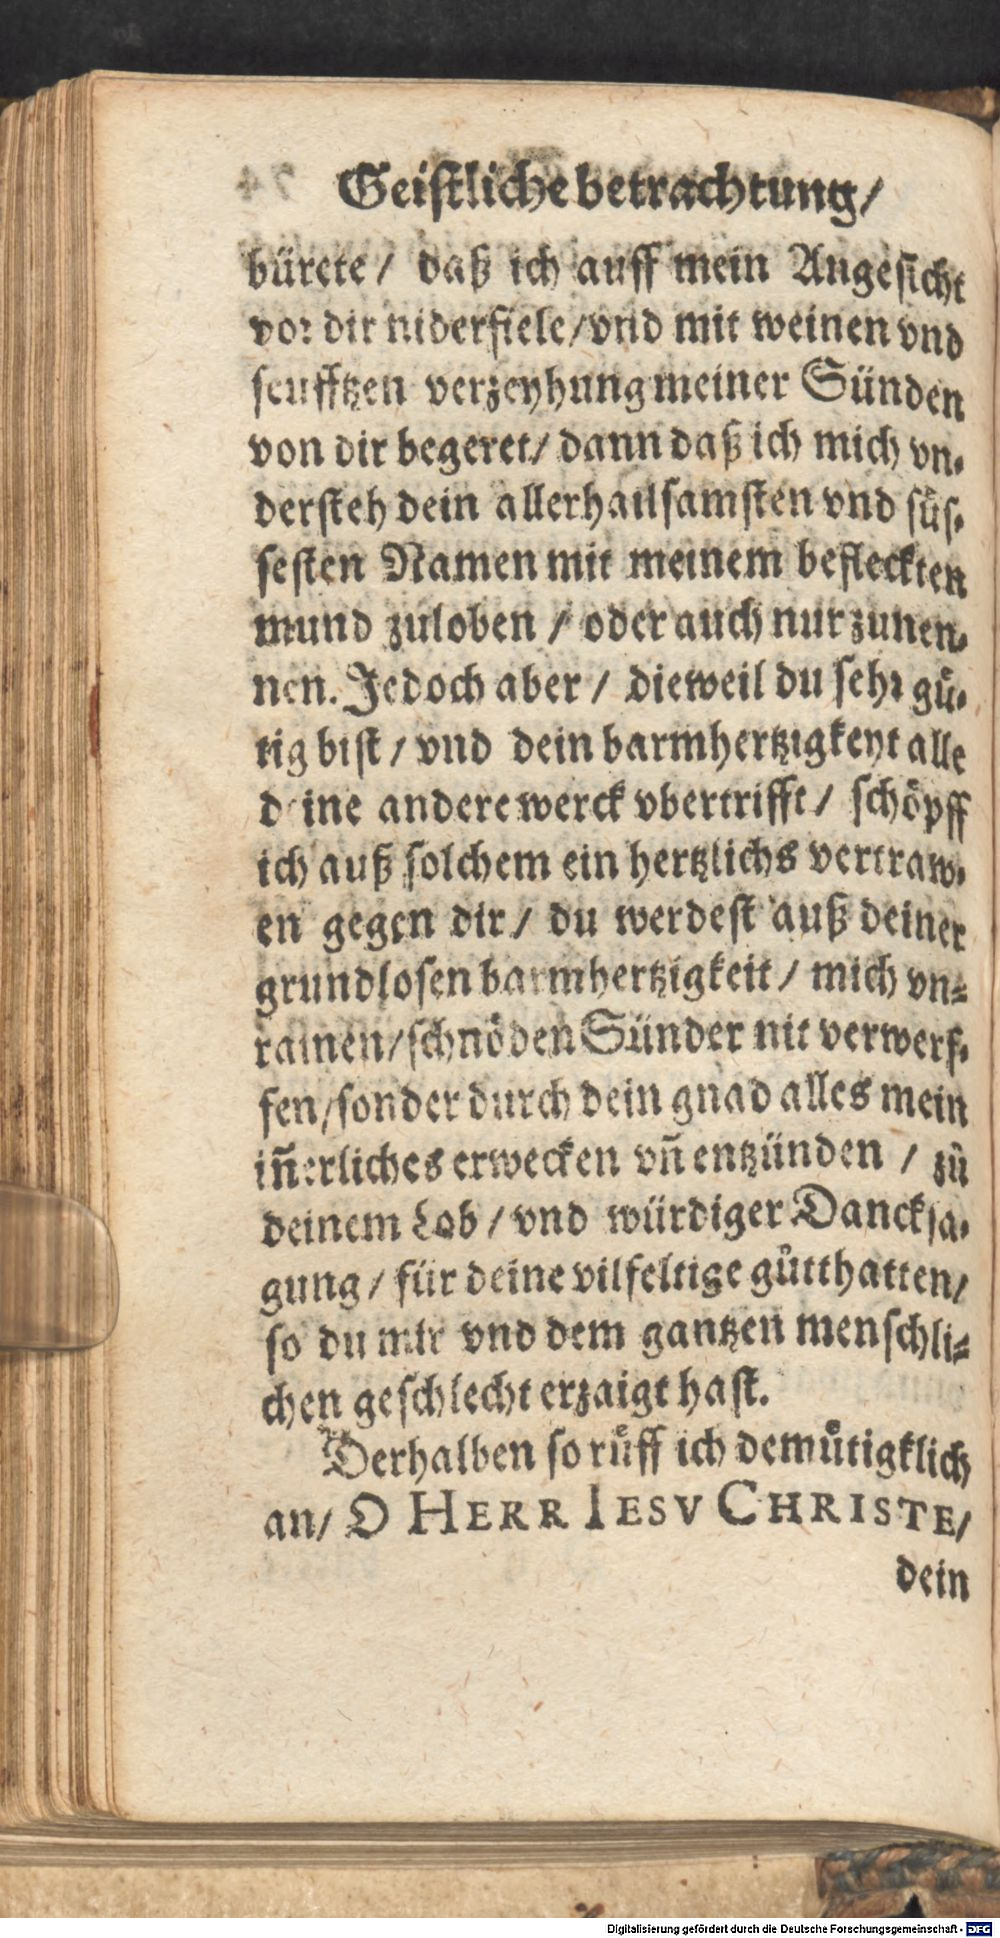 Geistliche betrachtung/
bürete/ daß ich auff mein Angesicht
vor dir niderfiele/vnd mit weinen vnd
seufftzen verzeyhung meiner Sünden
von dir begeret/ dann daß ich mich vn-
dersteh dein allerhailsamsten vnd süs-
sesten Namen mit meinem befleckten
mund zuloben / oder auch nur zunen-
nen. Jedoch aber / dieweil du sehr gü-
tig bist / vnd dein barmhertzigkeyt alle
deine andere werck vbertrifft / schöpff
ich auß solchem ein hertzlichs vertraw-
en gegen dir / du werdest auß deiner
grundlosen barmhertzigkeit / mich vn-
rainen/schnöden Sünder nit verwerf-
fen/sonder durch dein gnad alles mein
iñerliches erwecken vñ entzünden / zů
deinem Lob / vnd würdiger Dancksa-
gung / für deine vilfeltige gůtthatten/
so du mir vnd dem gantzen menschli-
chen geschlecht erzaigt hast.
Derhalben so růff ich demůtigklich
an/ O HERR IESV CHRISTE/
dein
Digitalisierung gefördert durch die Deutsche Forschungsgemeinschaft - DFG